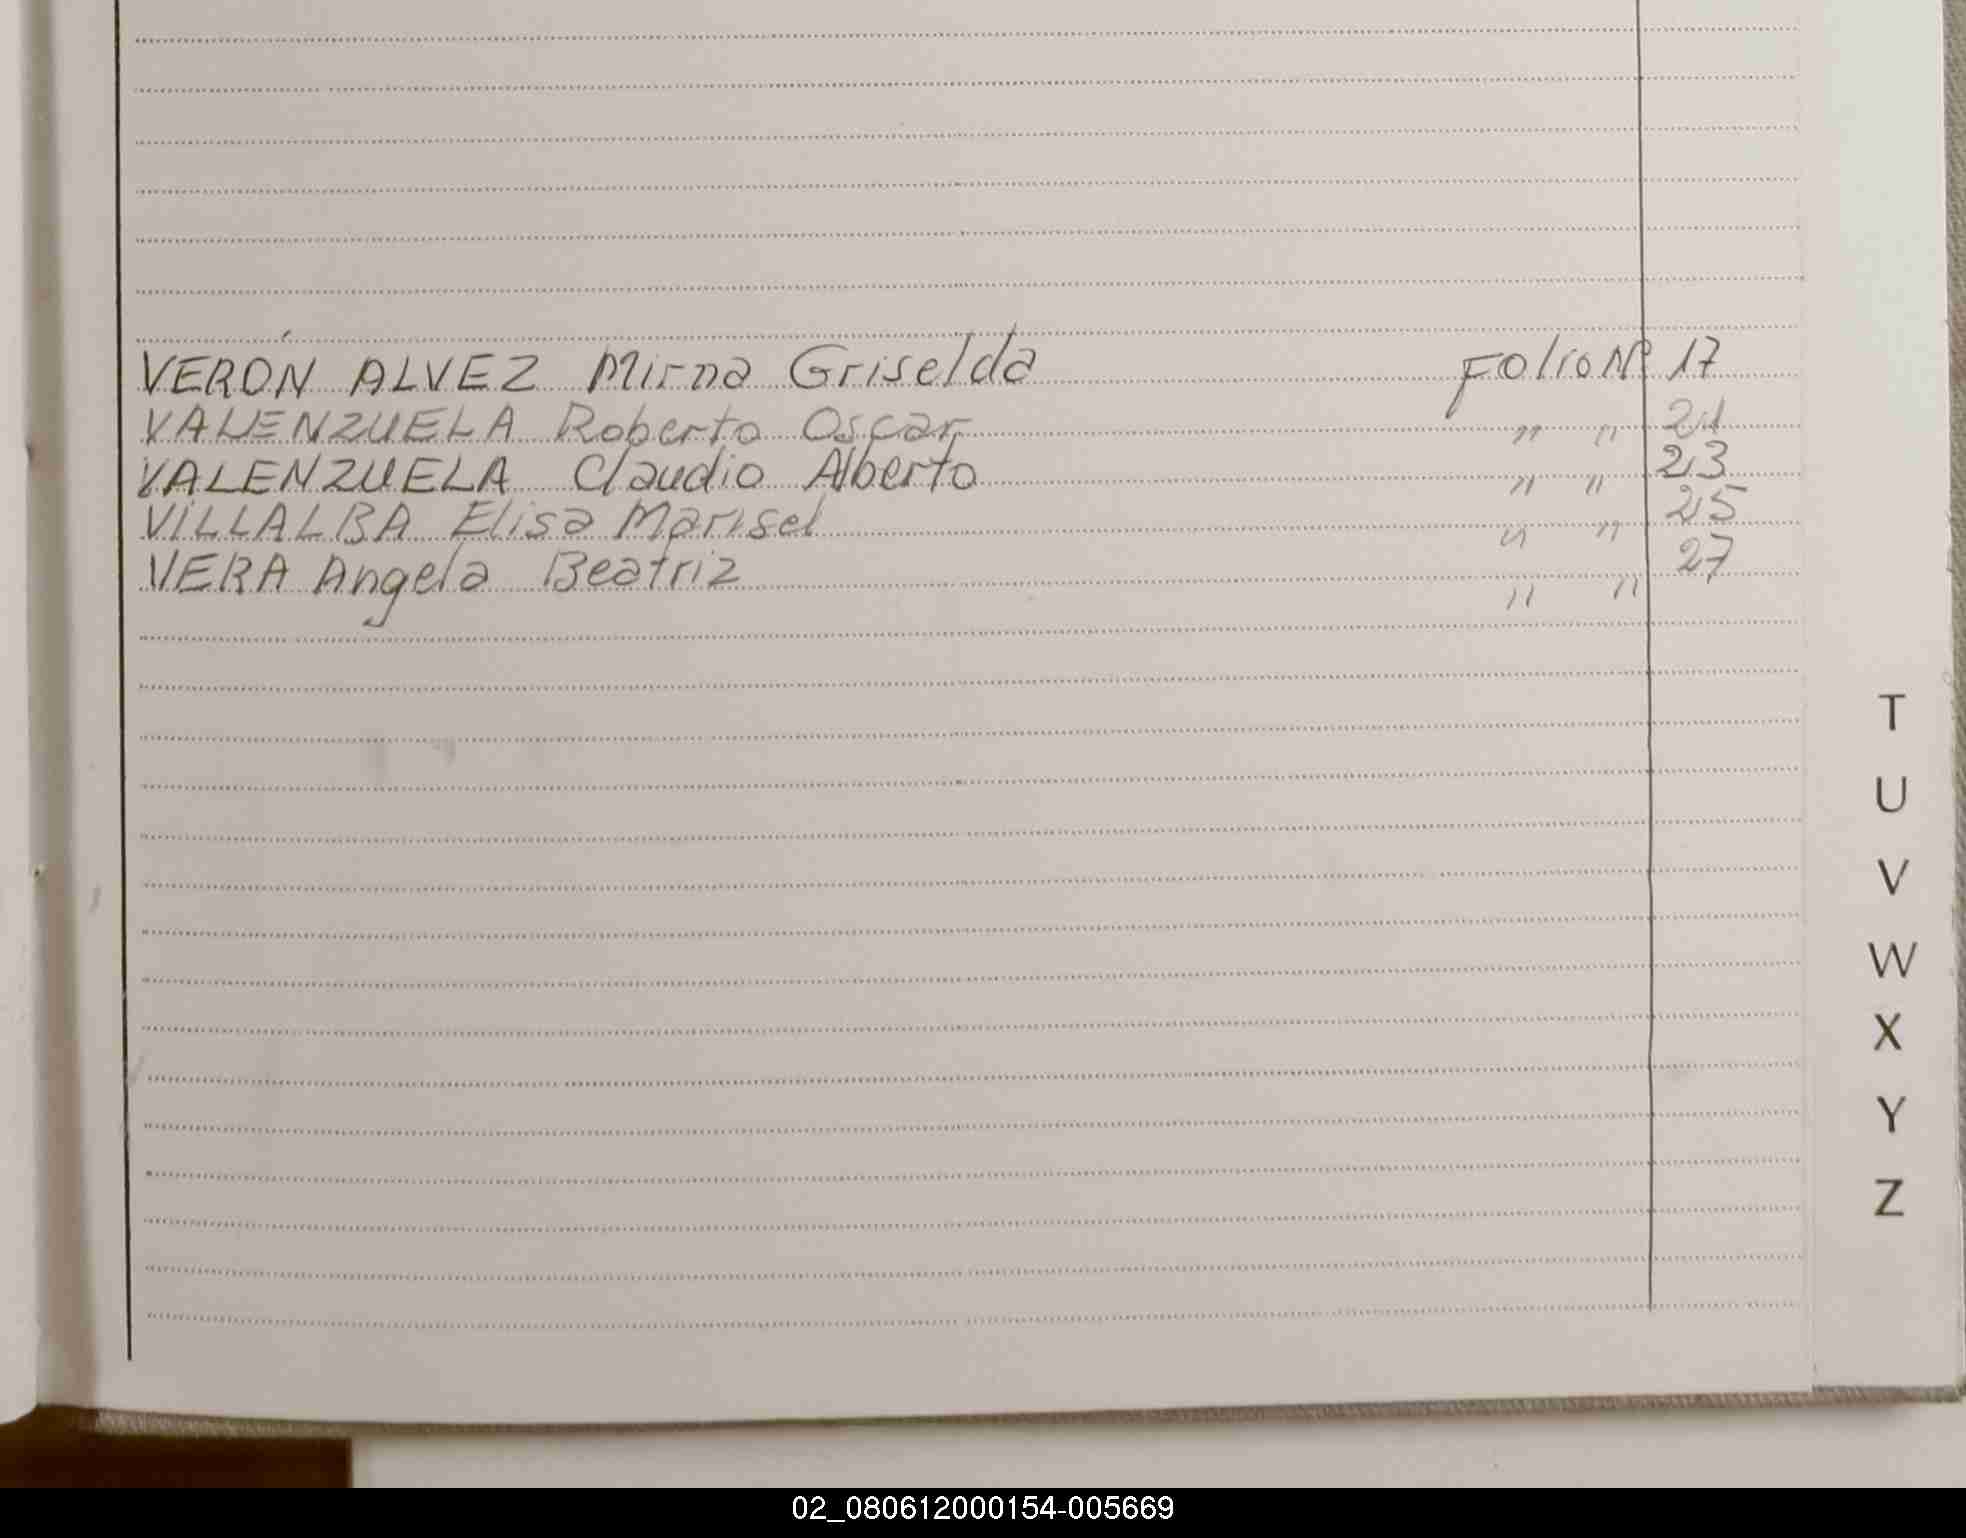 VERÓN ALVEZ Mirna Griselda Folio Nº 17
VALENZUELA Roberto Oscar " " 21
VALENZUELA Claudio Alberto " " 23
VILLALBA Elisa Marisel " " 25
VERA Angela Beatriz " " 27
T
U
V
W
X
Y
Z
02_080612000154-005669